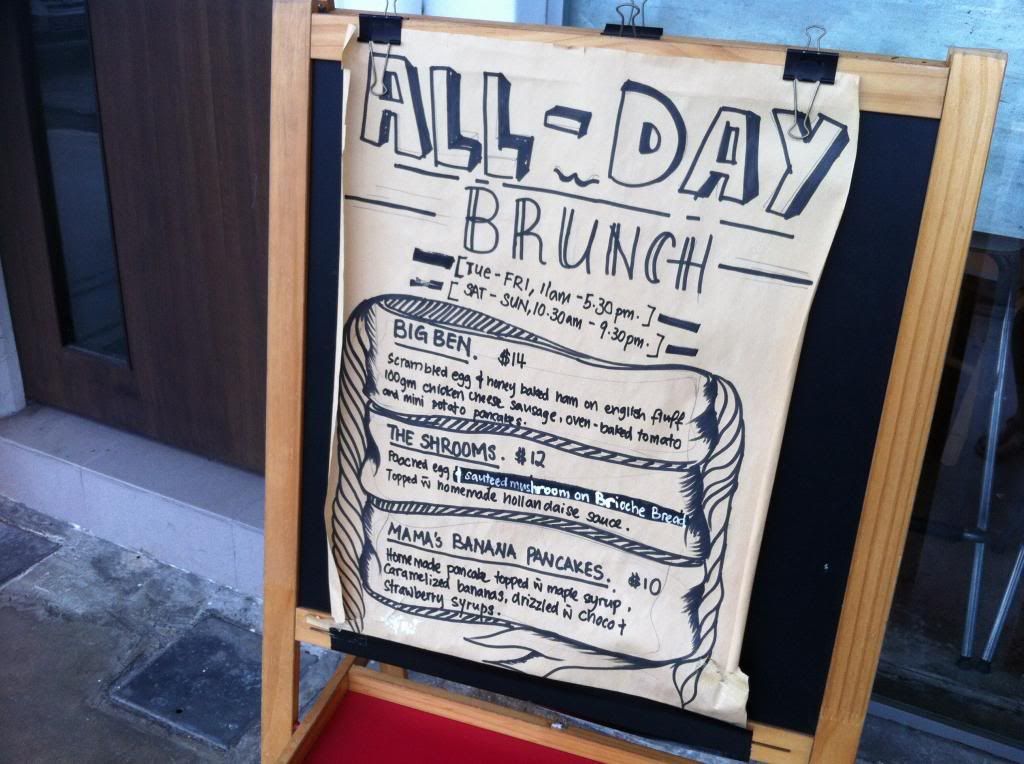 ALL-DAY
BRUNCH
[TUE-FRI, 11am-5.30pm.]
[SAT-SUN, 10.30am-9.30pm.]
BIG BEN. $14
Scrambled egg & honey baked ham on english fluff
100gm chicken cheese sausage, oven-baked tomato
and mini potato pancakes.
THE SHROOMS. $12
Poached egg & sauteed mushroom on Brioche Bread
Topped w̄ homemade hollandaise sauce.
MAMA'S BANANA PANCAKES. $10
Homemade pancake topped w̄ maple syrup,
Caramelized bananas, drizzled w̄ choco +
strawberry syrups.